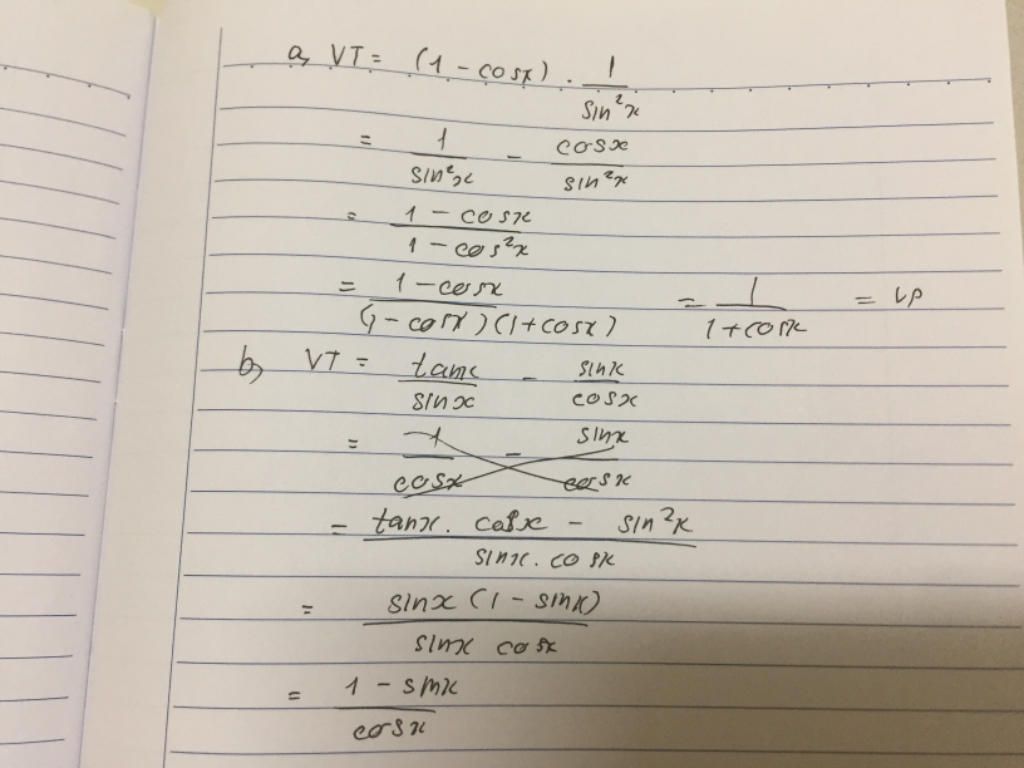 a, VT = (1 - cosx) . 1/sin²x
= 1/sin²x - cosx/sin²x
= (1 - cosx)/(1 - cos²x)
= (1 - cosx)/((1 - cosx)(1 + cosx)) = 1/(1 + cosx) = VP
b, VT = tanx/sinx - sinx/cosx
= 1/cosx - sinx/cosx
= (tanx . cosx - sin²x)/(sinx . cosx)
= sinx(1 - sinx)/(sinx cosx)
= (1 - sinx)/cosx